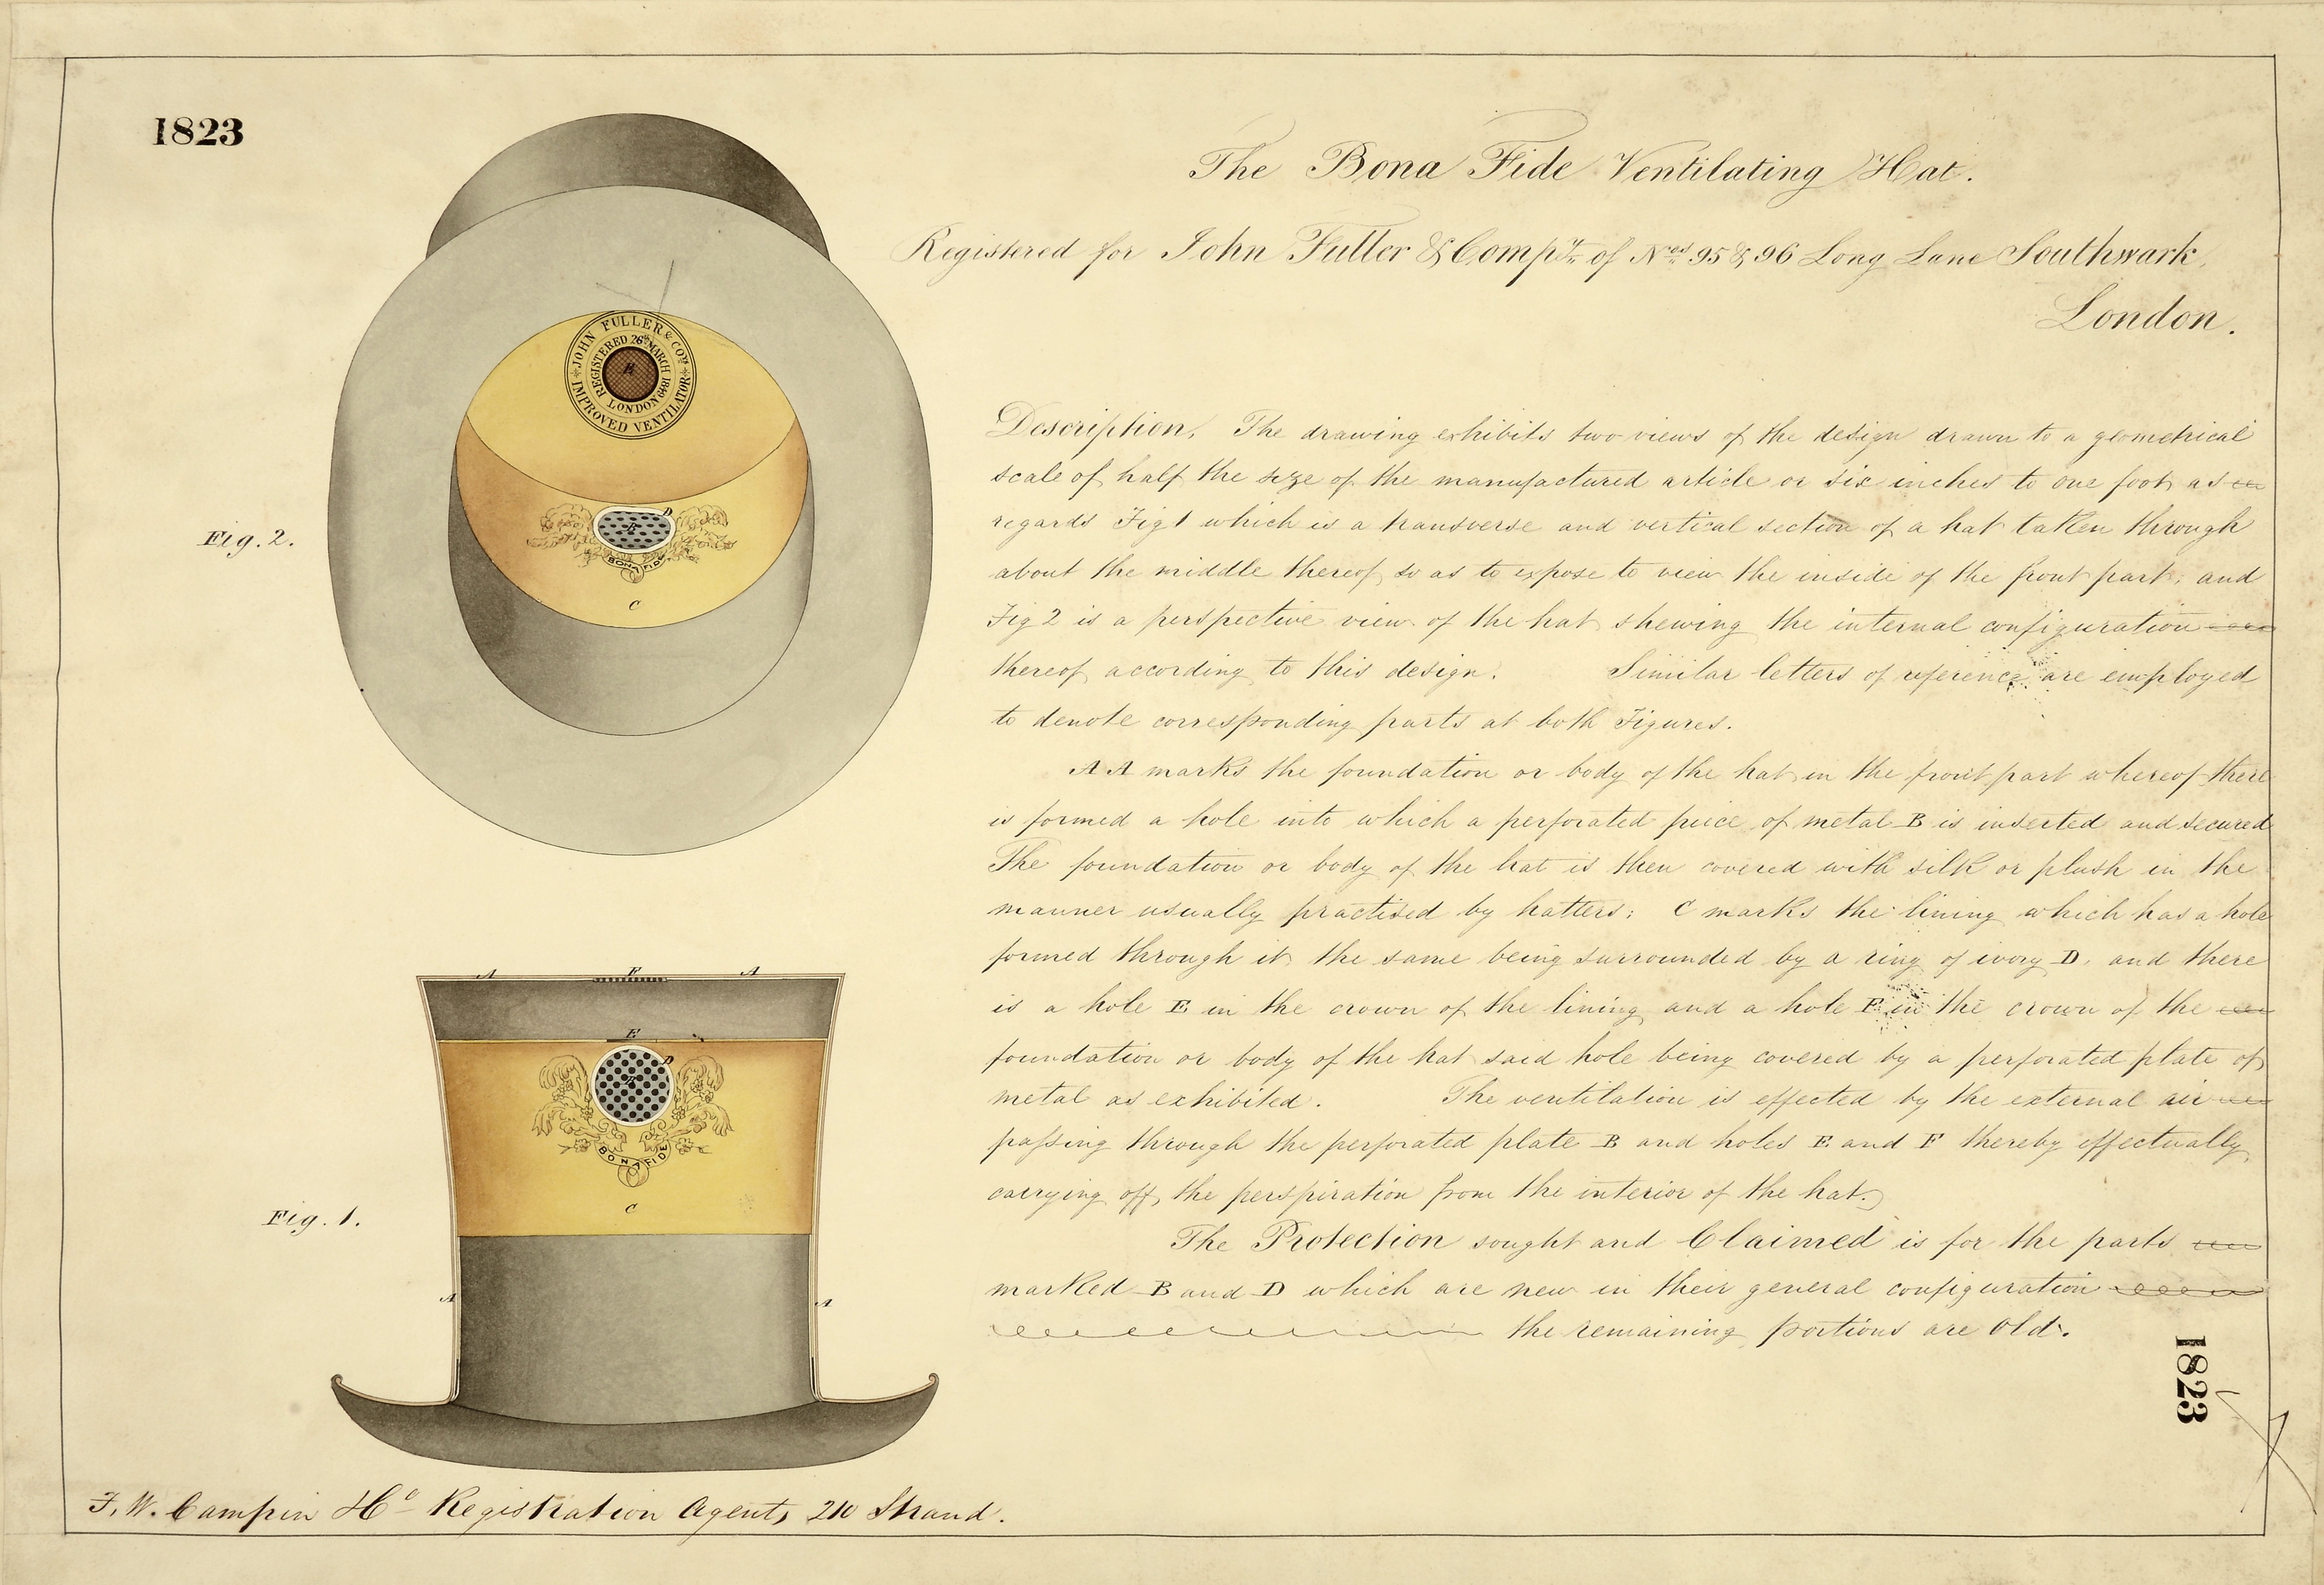 1823
The Bona Fide Ventilating Hat.
Registered for John Fuller & Compy. of Nos. 95 & 96 Long Lane Southwark,
London.
Description. The drawing exhibits two views of the design drawn to a geometrical
scale of half the size of the manufactured article or six inches to one foot as
regards Fig 1 which is a transverse and vertical section of a hat taken through
about the middle thereof so as to expose to view the inside of the front part; and
Fig 2 is a perspective view of the hat shewing the internal configuration
thereof according to this design. Similar letters of reference are employed
to denote corresponding parts at both Figures.
A A marks the foundation or body of the hat in the front part whereof there
is formed a hole into which a perforated piece of metal B is inserted and secured
The foundation or body of the hat is then covered with silk or plush in the
manner usually practised by hatters; C marks the lining which has a hole
formed through it the same being surrounded by a ring of ivory D, and there
is a hole E in the crown of the lining and a hole F in the crown of the
foundation or body of the hat said hole being covered by a perforated plate of
metal as exhibited. The ventilation is effected by the external air
passing through the perforated plate B and holes E and F thereby effectually
carrying off the perspiration from the interior of the hat.
The Protection sought and Claimed is for the parts
marked B and D which are new in their general configuration
the remaining portions are Old.
1823
Fig. 2.
JOHN FULLER & COMPY
IMPROVED VENTILATOR
REGISTERED 26th MARCH
LONDON
E
B
D
BONA FIDE
C
Fig. 1.
A F A
E
D
B
BONA FIDE
C
A A
F. W. Campin Registration Agent, 210 Strand.